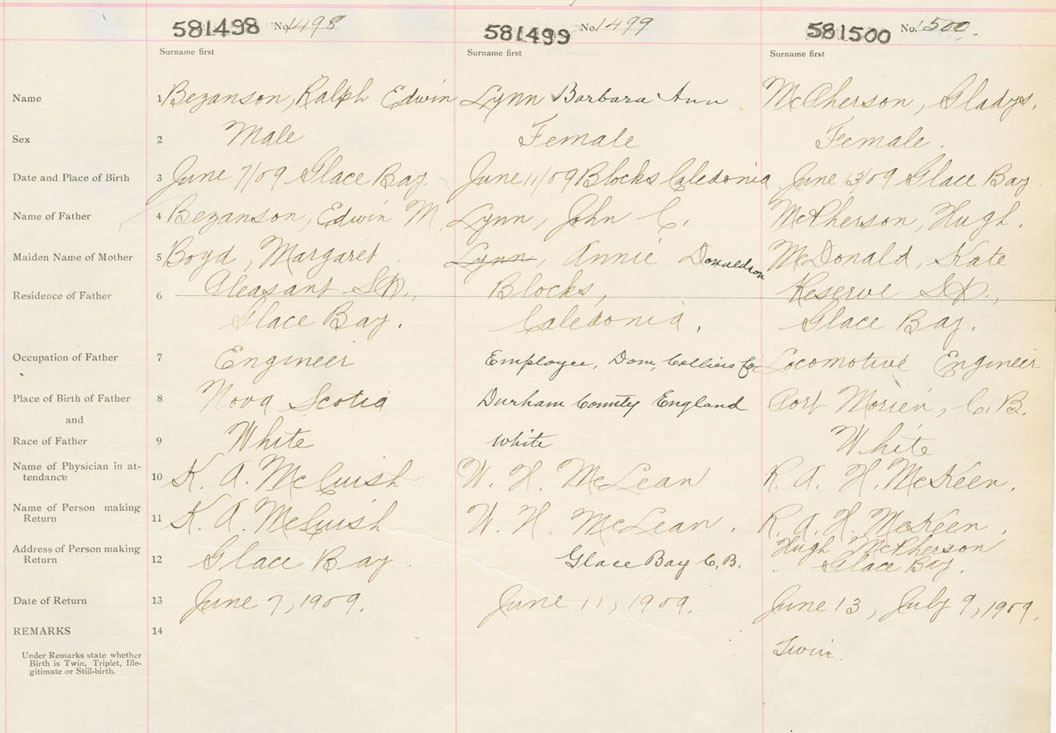 581498 No. 1498 581499 No. 1499 581500 No. 1500.
Surname first Surname first Surname first
Name 1 Bezanson, Ralph Edwin Lynn Barbara Ann McPherson, Gladys.
Sex 2 Male Female Female.
Date and Place of Birth 3 June 7/09 Glace Bay. June 11/09 Blocks Caledonia June 3/09 Glace Bay
Name of Father 4 Bezanson, Edwin M. Lynn, John C. McPherson, Hugh.
Maiden Name of Mother 5 Boyd, Margaret Lynn, Annie Donaldson McDonald, Kate
Residence of Father 6 Pleasant St., Blocks, Reserve St.,
Glace Bay. Caledonia, Glace Bay.
Occupation of Father 7 Engineer Employee, Dom, Colliers Co. Locomotive Engineer
Place of Birth of Father 8 Nova Scotia Durham County England Port Morien, C.B.
and
Race of Father 9 White White White
Name of Physician in at-
tendance 10 K. A. McCuish W. H. McLean R. A. H. McKeen.
Name of Person making
Return 11 K. A. McCuish W. H. McLean. R. A. H. McKeen.
Address of Person making Hugh McPherson
Return 12 Glace Bay Glace Bay C.B. Glace Bay.
Date of Return 13 June 7, 1909. June 11, 1909. June 13, July 9, 1909.
REMARKS 14
Under Remarks state whether Twin.
Birth is Twin, Triplet, Ille-
gitimate or Still-birth.